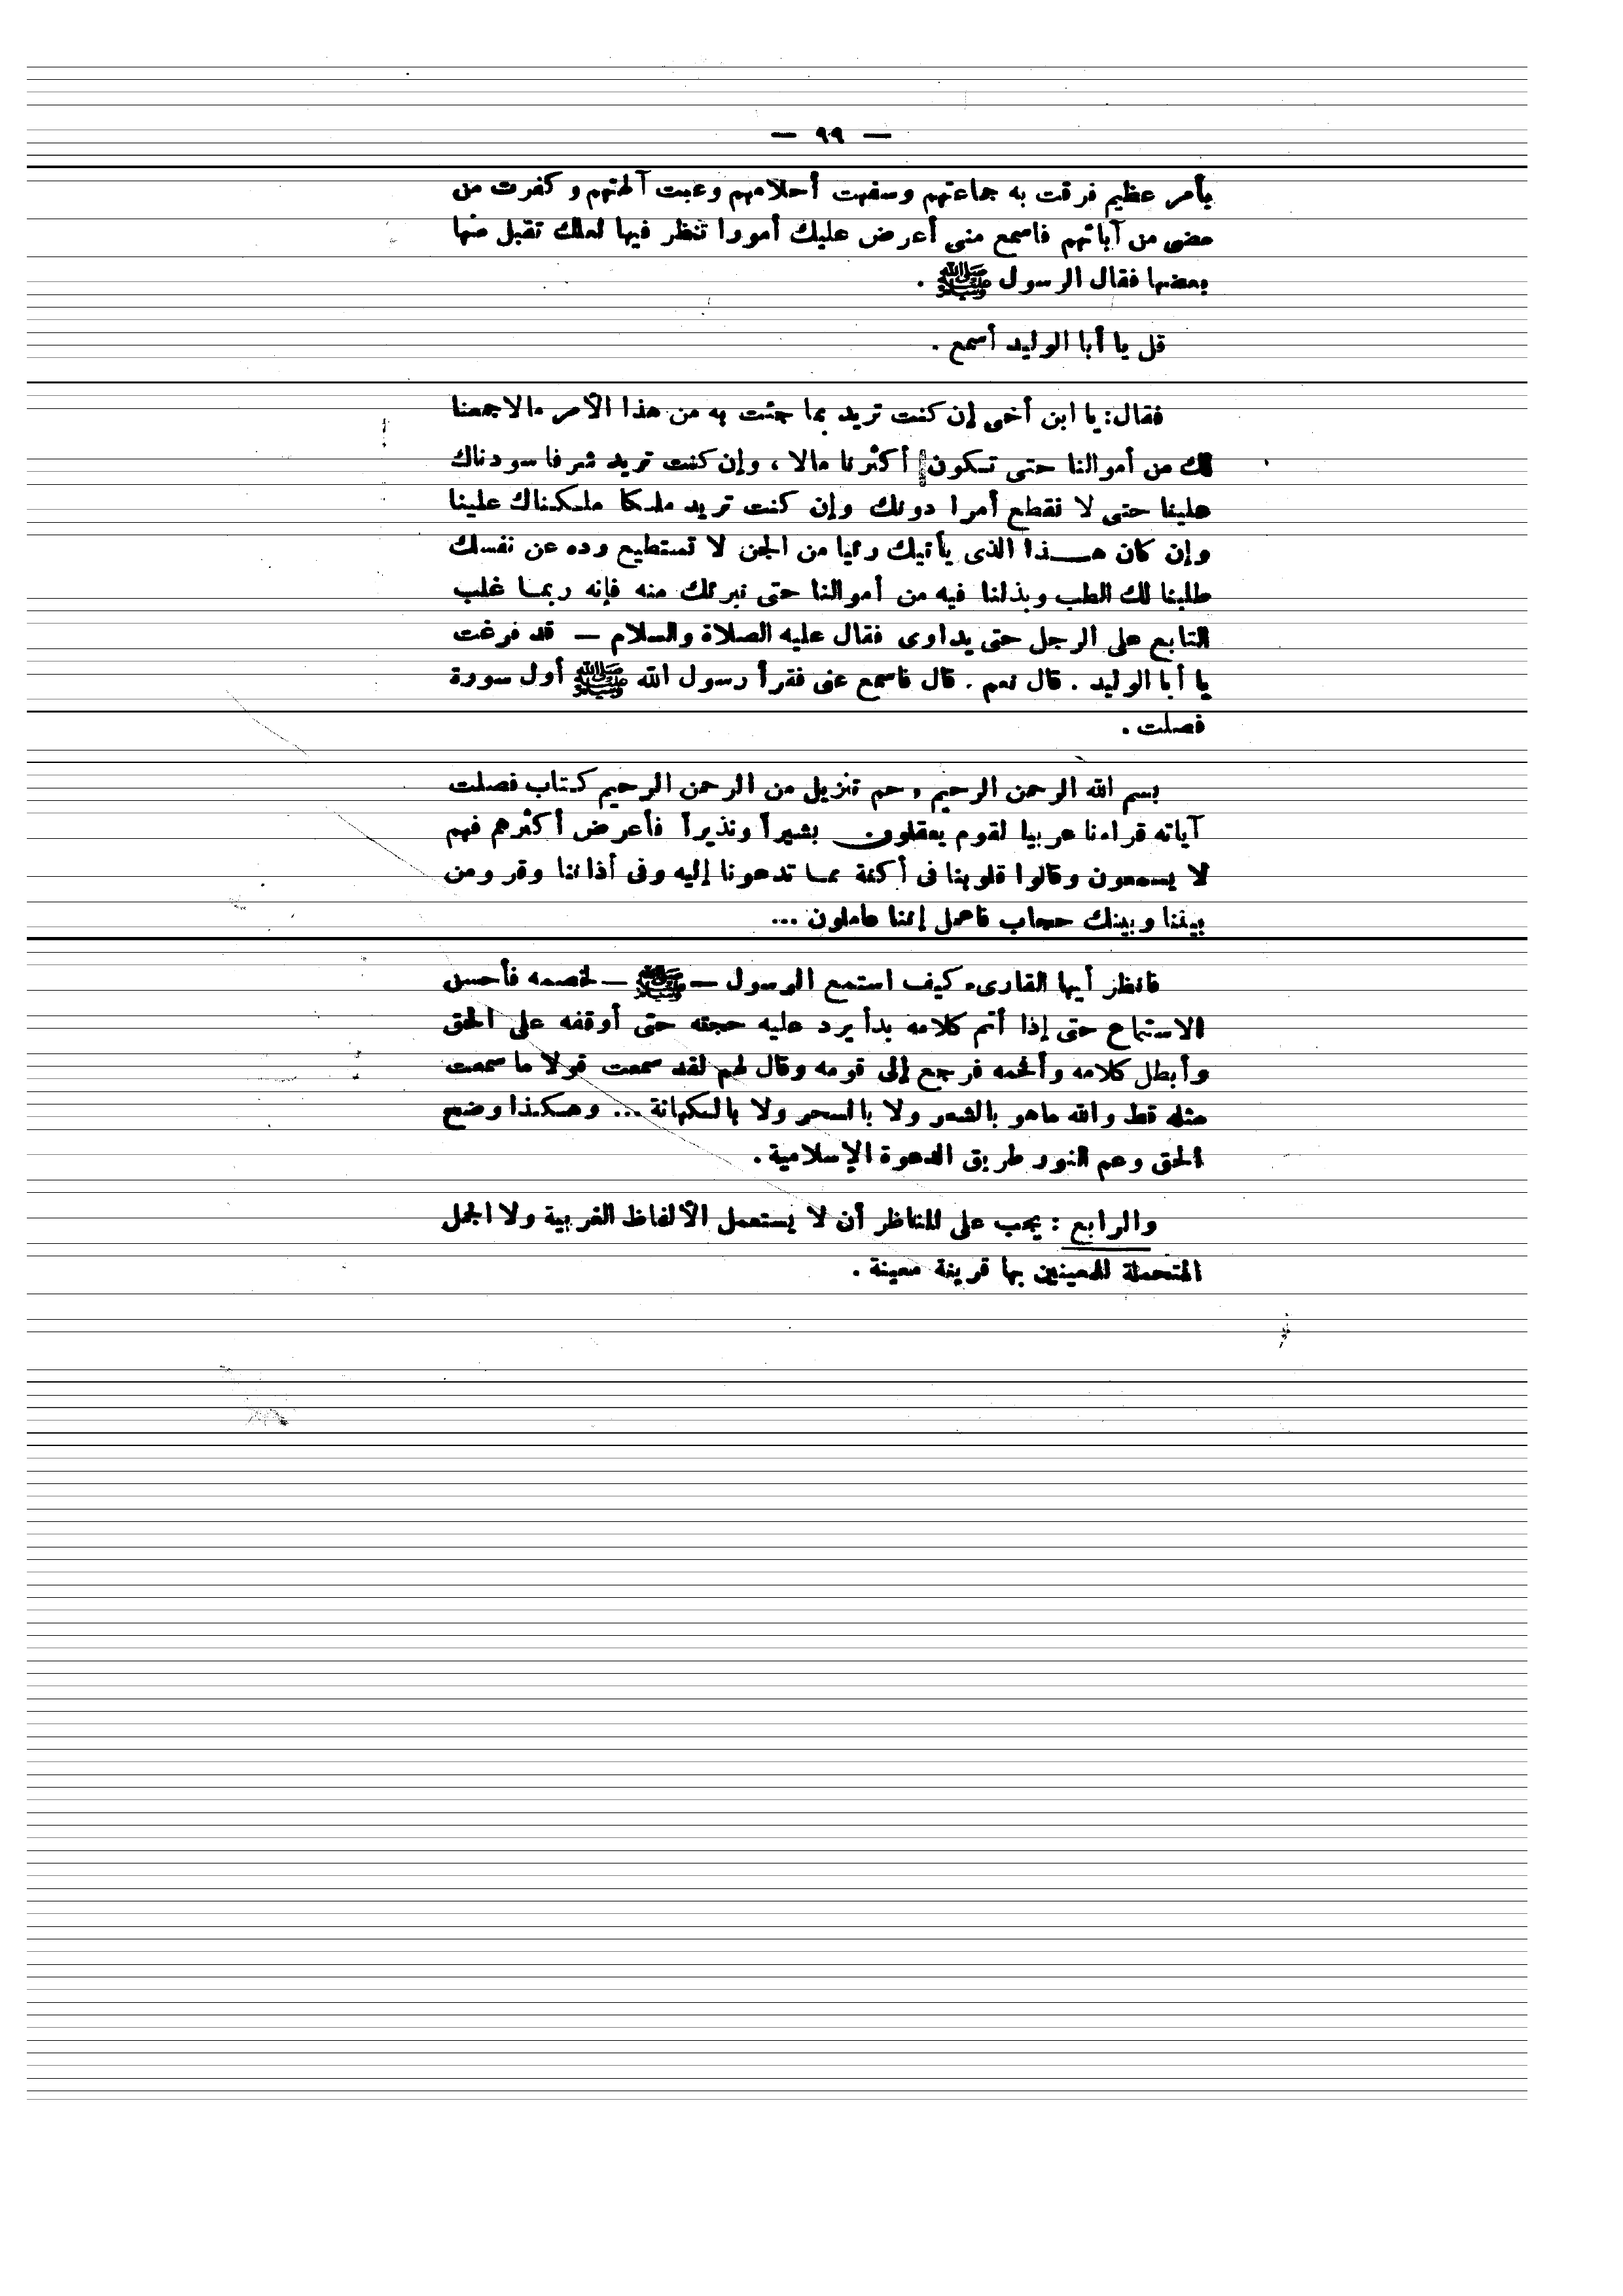 — ٩٩ —
بأمر عظيم فرقت به جماعتهم وسفهت أحلامهم وعبت آلهتهم وكفرت من
مضى من آبائهم فاسمع منى أعرض عليك أمورا تنظر فيها لعلك تقبل منها
بعضها فقال الرسول ﷺ .
قل يا أبا الوليد أسمع .
فقال: يا ابن أخى إن كنت تريد بما جئت به من هذا الأمر مالا جمعنا
لك من أموالنا حتى تكون أكثرنا مالا ، وإن كنت تريد شرفا سودناك
علينا حتى لا نقطع أمرا دونك وإن كنت تريد ملكا ملكناك علينا
وإن كان هذا الذى يأتيك رئيا من الجن لا تستطيع رده عن نفسك
طلبنا لك الطب وبذلنا فيه من أموالنا حتى نبرئك منه فإنه ربما غلب
التابع على الرجل حتى يداوى فقال عليه الصلاة والسلام — قد فرغت
يا أبا الوليد . قال نعم . قال فاسمع عنى فقرأ رسول الله ﷺ أول سورة
فصلت .
بسم الله الرحمن الرحيم ، حم تنزيل من الرحمن الرحيم كتاب فصلت
آياته قراءنا عربيا لقوم يعقلون بشيراً ونذيراً فأعرض أكثرهم فهم
لا يسمعون وقالوا قلوبنا فى أكنة مما تدعونا إليه وفى أذاننا وقر ومن
بيننا وبينك حجاب فاعمل إننا عاملون ...
فانظر أيها القارىء كيف استمع الرسول — ﷺ — لخصمه فأحسن
الاستماع حتى إذا أتم كلامه بدأ يرد عليه حجته حتى أوقفه على الحق
وأبطل كلامه وألحمه فرجع إلى قومه وقال لهم لقد سمعت قولا ما سمعت
مثله قط والله ماهو بالشعر ولا بالسحر ولا بالكهانة ... وهكذا وضح
الحق وعم النور طريق الدعوة الإسلامية .
والرابع : يجب على المناظر أن لا يستعمل الألفاظ الغريبة ولا الجمل
المتحملة لمعينين بها قرينة معينة .